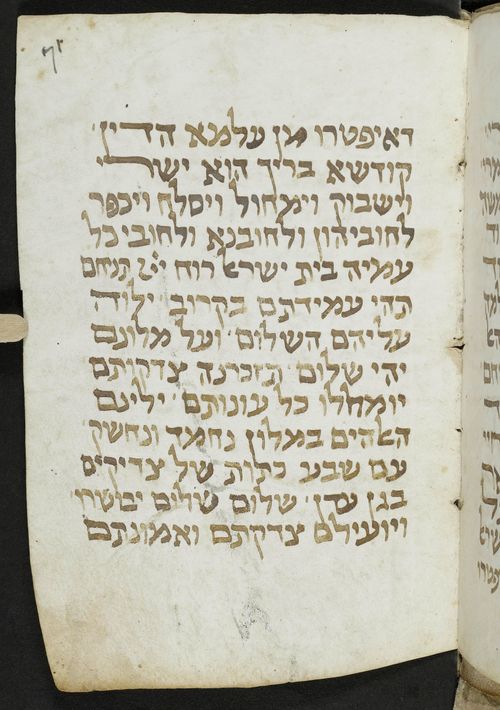 דאיפטרו מן עלמא הדין׳
קודשא בריך הוא ישרי
וישבוק וימחול ויסלח ויכפר
לחוביהון ולחובנא ולחובי כל
עמיה בית ישראל רוח ייי תנחם
תהי עמידתם בקרוב ילוה
עליהם השלום׳ ועל מלונם
יהי שלום׳ תזכרנה צדקותם
יומחלו כל עונותם׳ ילינם
האלהים במלון נחמד ונחשק
עם שבע כתות של צדיקים
בגן עדן׳ שלום שלום יבושרו׳
ויועילם צדקתם ואמונתם